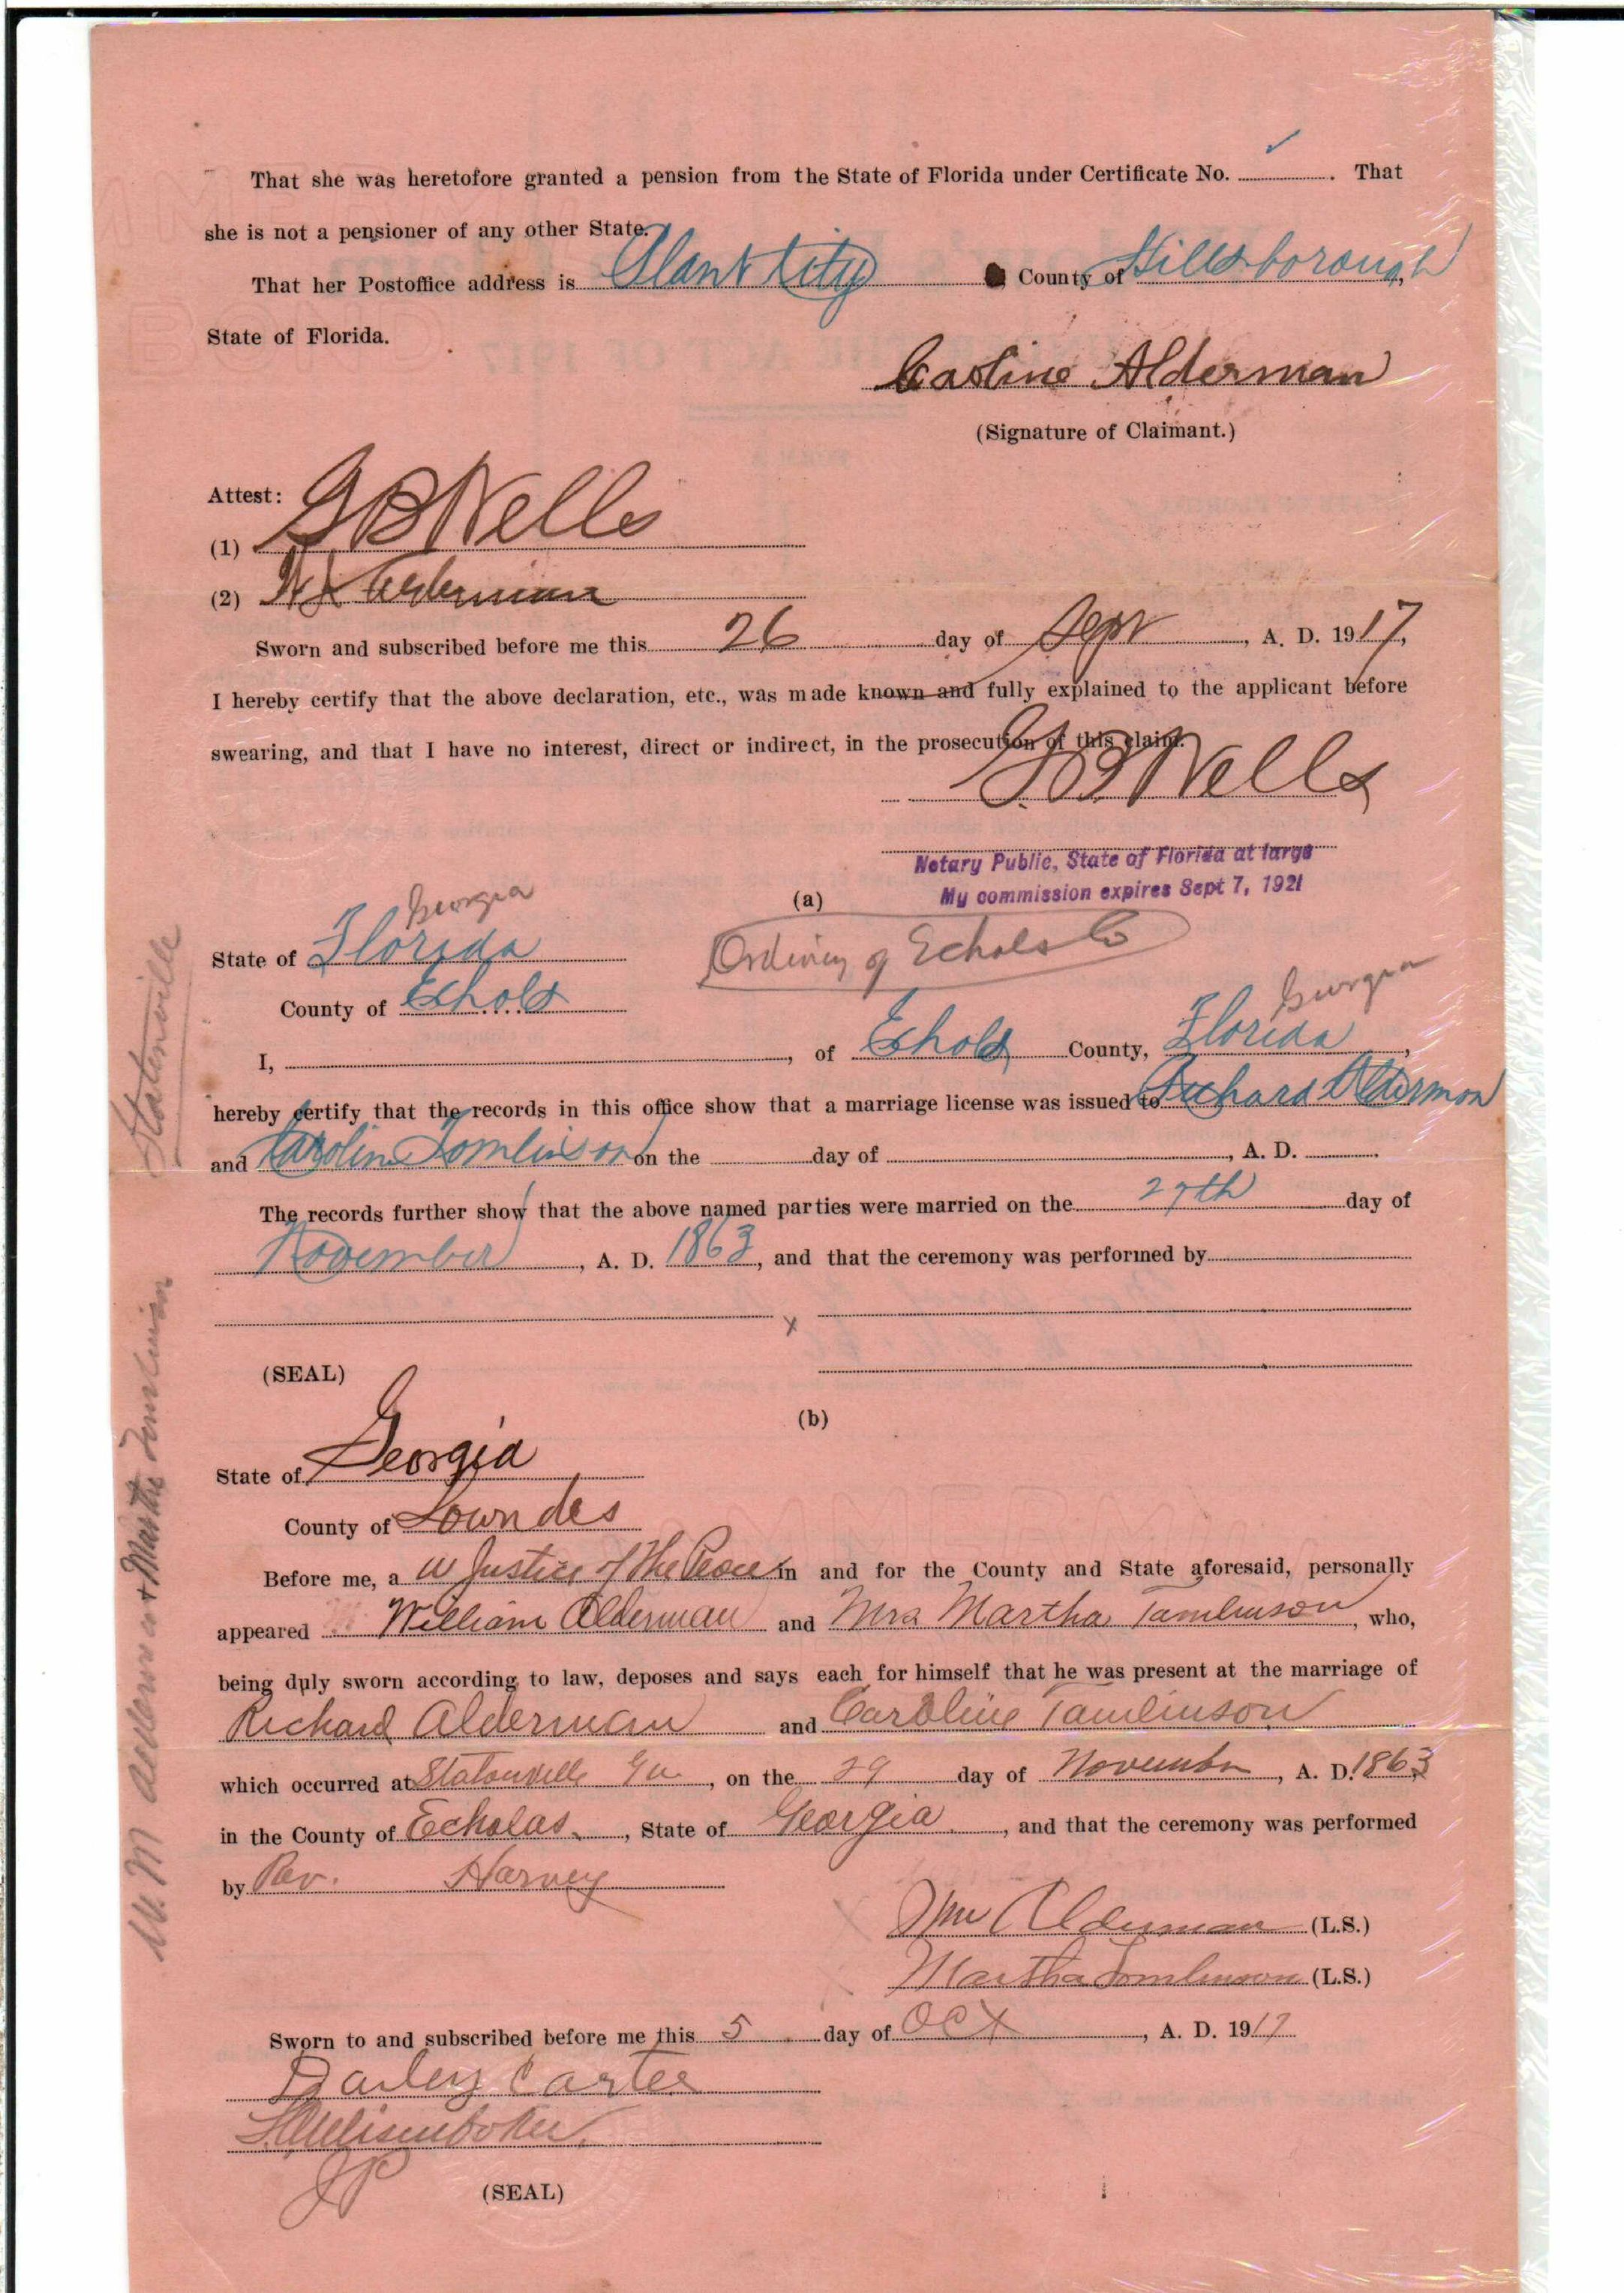 That she was heretofore granted a pension from the State of Florida under Certificate No. ✓. That
she is not a pensioner of any other State.
That her Postoffice address is Plant City County of Hillsborough,
State of Florida.
Caroline Alderman
(Signature of Claimant.)
Attest:
(1) G B Wells
(2) Alderman
Sworn and subscribed before me this 26 day of Sept, A. D. 1917,
I hereby certify that the above declaration, etc., was made known and fully explained to the applicant before
swearing, and that I have no interest, direct or indirect, in the prosecution of this claim.
G B Wells
Notary Public, State of Florida at large
My commission expires Sept 7, 1921
(a)
Georgia
State of Florida
Ordinary of Echols Co
County of Echols
Georgia
I, , of Echols County, Florida,
hereby certify that the records in this office show that a marriage license was issued to Richard Alderman
and Carolin Tomlinson on the day of , A. D. .
The records further show that the above named parties were married on the 29th day of
November, A. D. 1863, and that the ceremony was performed by
x
(SEAL)
(b)
State of Georgia
County of Lowndes
Before me, a Justice of the Peace in and for the County and State aforesaid, personally
appeared William Alderman and Mrs Martha Tamlinson, who,
being duly sworn according to law, deposes and says each for himself that he was present at the marriage of
Richard Alderman and Caroline Tamlinson
which occurred at Statonville Ga, on the 29 day of November, A. D. 1863
in the County of Echolas, State of Georgia, and that the ceremony was performed
by Rev. Harvey
Wm Alderman (L.S.)
Martha Tomlinson (L.S.)
Sworn to and subscribed before me this 5 day of Oct, A. D. 1917
Carter
JP
(SEAL)
Statenville
Wm Alderman & Martha Tomlinson